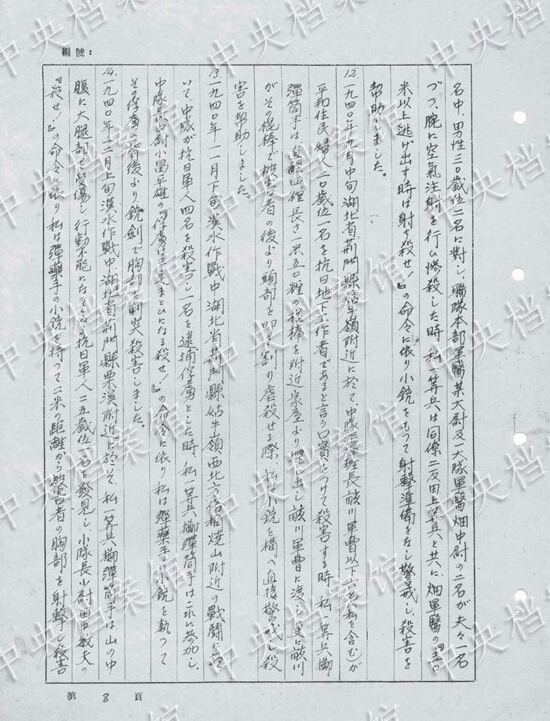 編號：
名中、男性三〇歳位二名に対し、聯隊本部軍醫某大尉及二大隊軍醫畑中尉の二名が夫々一名
づつ、腕に空氣注射を行ひ惨殺した時、私一等兵は同僚二反田上等兵と共に、畑軍醫の『三〇
米以上逃げ出す時は射ち殺せ！』の命令に依り小銃をもって射撃準備をなし警戒し殺害を
幇助しました。
12.一九四〇年九月中旬湖北省荊門縣姑牛嶺附近に於て、中隊 班長畝川軍曹以下六名(私を含む)が
平和住民婦人二〇歳位一名を抗日地下工作者であると言う口實をつけて殺害する時、私一等兵擲
彈筒手は直径 糎長さ一米五〇糎の棍棒を附近家屋より 出し畝川軍曹に渡し更に畝川
がその棍棒で被害者の後より頭部を叩き割り虐殺せる際、私は小銃を構へ直接警戒し殺
害を幇助しました。
13.一九四〇年一一月下旬漢水作戰中湖北省荊門縣姑牛嶺西北方 燒山附近の戰鬪に
いて、中隊が抗日軍人四名を殺害し一名を逮捕俘虜とした時、私一等兵擲彈筒手は之に参加し、
中隊長 小畠英雄の『俘虜は足手まとひになる殺せ！』の命令に依り私は彈藥手の小銃を執って
その俘虜の背後より銃劍で胸部を刺突殺害しました。
14.一九四〇年一二月上旬漢水作戰中、湖北省荊門縣栗溪附近に於いて、私一等兵擲彈筒手は山の中
腹に大腿部を受傷し行動不能になってゐる抗日軍人二五歳位一名を發見し、小隊長少尉田中 の
『殺せ！』の命令に依り私は彈藥手の小銃を持って二米の距離から被害者の胸部を射撃し殺害
第 8 頁
中央档案馆